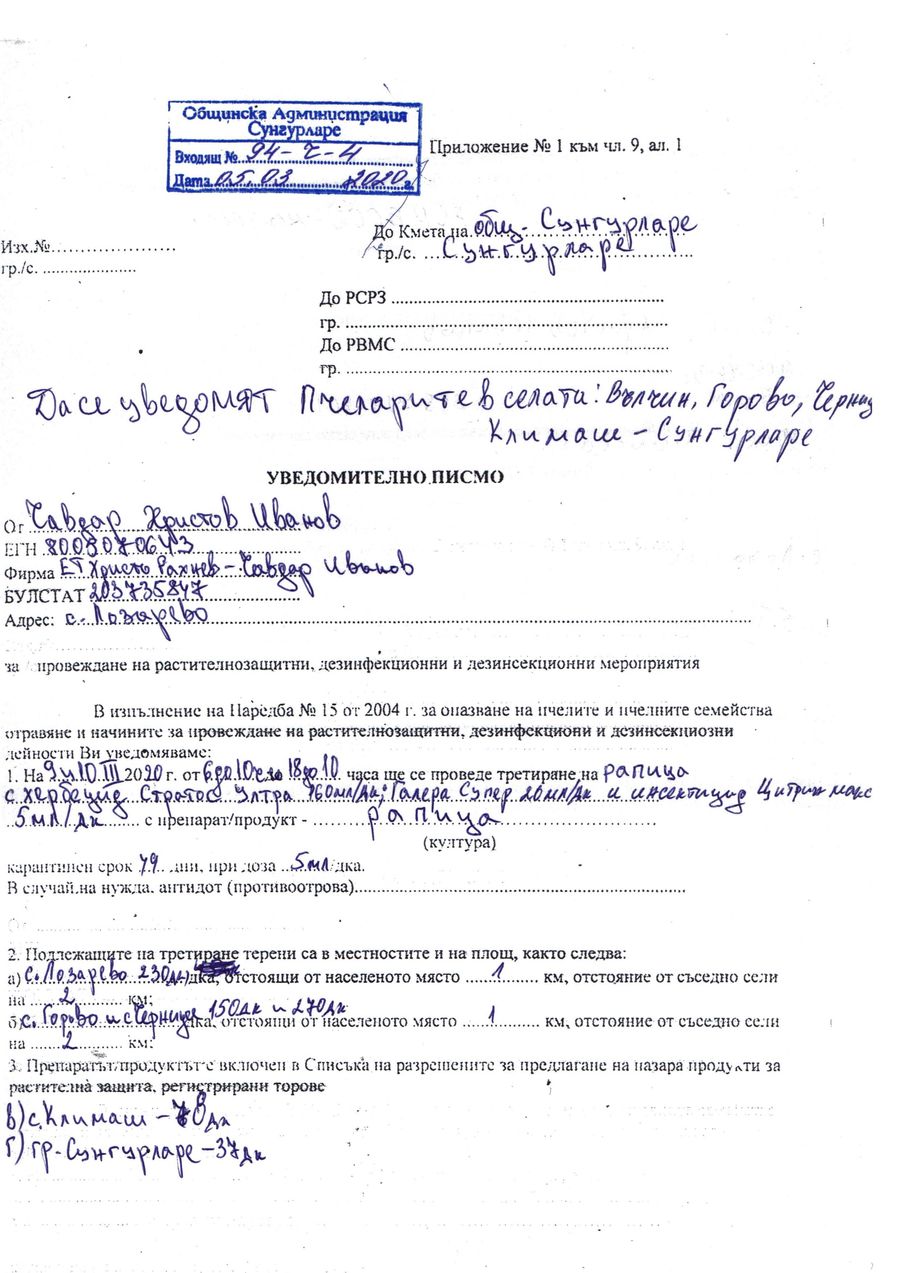 Общинска Администрация
Сунгурларе
Входящ №. 94-Ч-4
Дата 05.03 2020 г.
Приложение № 1 към чл. 9, ал. 1
До Кмета на общ- Сунгурларе
Изх.№....................
гр./с. Сунгурларе
гр./с. .....................
До РСРЗ ...............................................................
гр. .........................................................................
До РВМС .............................................................
гр. .........................................................................
Да се уведомят Пчеларите в селата: Вълчин, Горово, Черница
Климаш - Сунгурларе
УВЕДОМИТЕЛНО ПИСМО
От Чавдар Христов Иванов
ЕГН 8008070643
Фирма ЕТ Христо Рахнев - Чавдар Иванов
БУЛСТАТ 203735847
Адрес: с. Лозарево
за провеждане на растителнозащитни, дезинфекционни и дезинсекционни мероприятия
В изпълнение на Наредба № 15 от 2004 г. за опазване на пчелите и пчелните семейства
отравяне и начините за провеждане на растителнозащитни, дезинфекциони и дезинсекциозни
дейности Ви уведомяваме:
1. На 9 и 10.III 2020 г. от 6 до 10 18 до 10 часа ще се проведе третиране на рапица
с хербецид Стратос Ултра 160мл/дк; Галера Супер 20мл/дк и инсектицид Цитрин макс
5мл/дк с препарат/продукт - рапица
(култура)
карантинен срок 79 дни, при доза 5мл/дка.
В случай на нужда, антидот (противоотрова)...............................................................
2. Подлежащите на третиране терени са в местностите и на площ, както следва:
а) с. Лозарево 230дк, дка, отстоящи от населеното място 1 км, отстояние от съседно сели
на 2 км;
б) с. Горово и с Черница 150дк и 270дк дка, отстоящи от населеното място 1 км, отстояние от съседно сели
на 2 км:
3. Препаратът/продуктът е включен в Списъка на разрешените за предлагане на пазара продукти за
растителна защита, регистрирани торове
в) с. Климаш - 78дк
г) гр. Сунгурларе - 37дк